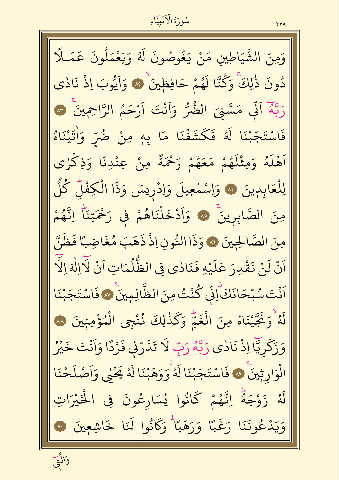 سُورَةُ الْاَنْبِيَاءِ
٣٢٨
وَمِنَ الشَّيَاطِينِ مَنْ يَغُوصُونَ لَهُ وَيَعْمَلُونَ عَمَلًا
دُونَ ذٰلِكَ وَكُنَّا لَهُمْ حَافِظِينَ ﴿٨٢﴾ وَاَيُّوبَ اِذْ نَادٰى
رَبَّهُٓ اَنِّى مَسَّنِىَ الضُّرُّ وَاَنْتَ اَرْحَمُ الرَّاحِمِينَ ﴿٨٣﴾
فَاسْتَجَبْنَا لَهُ فَكَشَفْنَا مَا بِهِ مِنْ ضُرٍّ وَاٰتَيْنَاهُ
اَهْلَهُ وَمِثْلَهُمْ مَعَهُمْ رَحْمَةً مِنْ عِنْدِنَا وَذِكْرٰى
لِلْعَابِدِينَ ﴿٨٤﴾ وَاِسْمٰعِيلَ وَاِدْرِيسَ وَذَا الْكِفْلِ كُلٌّ
مِنَ الصَّابِرِينَ ﴿٨٥﴾ وَاَدْخَلْنَاهُمْ فِى رَحْمَتِنَا اِنَّهُمْ
مِنَ الصَّالِحِينَ ﴿٨٦﴾ وَذَا النُّونِ اِذْ ذَهَبَ مُغَاضِبًا فَظَنَّ
اَنْ لَنْ نَقْدِرَ عَلَيْهِ فَنَادٰى فِى الظُّلُمَاتِ اَنْ لَٓا اِلٰهَ اِلَّٓا
اَنْتَ سُبْحَانَكَ اِنِّى كُنْتُ مِنَ الظَّالِمِينَ ﴿٨٧﴾ فَاسْتَجَبْنَا
لَهُ وَنَجَّيْنَاهُ مِنَ الْغَمِّ وَكَذٰلِكَ نُنْجِى الْمُؤْمِنِينَ ﴿٨٨﴾
وَزَكَرِيَّٓا اِذْ نَادٰى رَبَّهُ رَبِّ لَا تَذَرْنِى فَرْدًا وَاَنْتَ خَيْرُ
الْوَارِثِينَ ﴿٨٩﴾ فَاسْتَجَبْنَا لَهُ وَوَهَبْنَا لَهُ يَحْيٰى وَاَصْلَحْنَا
لَهُ زَوْجَهُ اِنَّهُمْ كَانُوا يُسَارِعُونَ فِى الْخَيْرَاتِ
وَيَدْعُونَنَا رَغَبًا وَرَهَبًا وَكَانُوا لَنَا خَاشِعِينَ ﴿٩٠﴾
وَالَّتِٓى